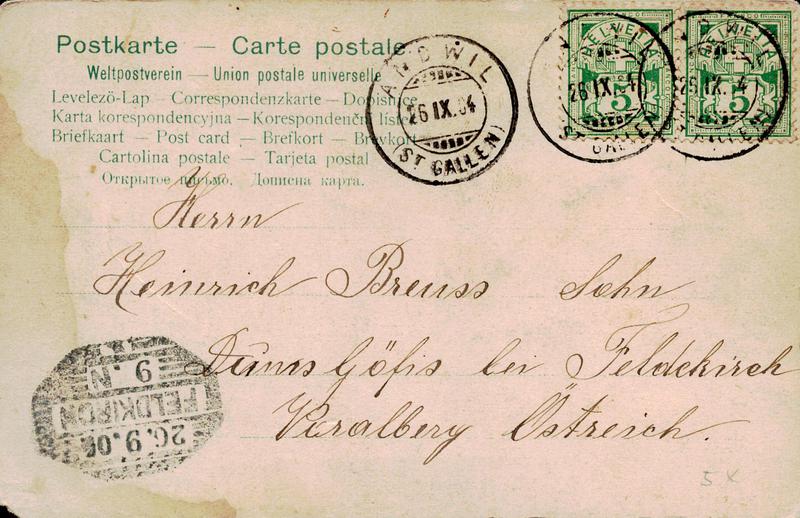 Postkarte — Carte postale
Weltpostverein — Union postale universelle
Levelezö-Lap — Correspondenzkarte — Dopisnice
Karta korespondencyjna — Korespondenční listek
Briefkaart — Post card — Brefkort — Brevkort
Cartolina postale — Tarjeta postal
Открытое письмо. Дописна карта.
ANDWIL
26.IX.04
(ST GALLEN)
HELVETIA
26.IX.04
5
ST GALLEN
HELVETIA
26.IX.04
5
Herrn
Heinrich Breuss Sohn
Dums Göfis bei Feldckirch
Voralberg Östreich.
9.N
FELDKIRCH
26.9.04
5 x